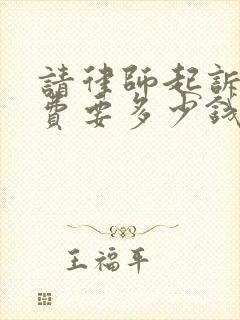 請律師起訴
費要多少錢
王福平